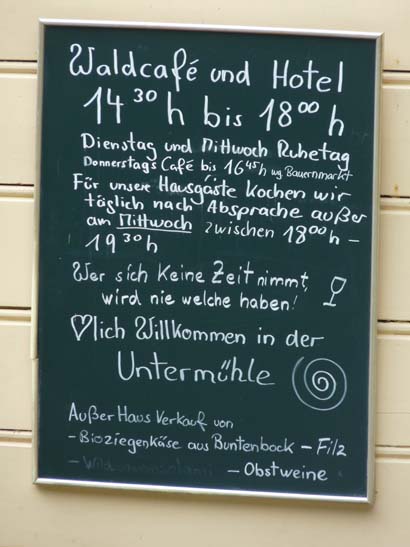 Waldcafé und Hotel
14³⁰h bis 18⁰⁰h
Dienstag und Mittwoch Ruhetag
Donnerstags Café bis 16⁴⁵h wg. Bauernmarkt
Für unsere Hausgäste Kochen wir
täglich nach Absprache außer
am Mittwoch zwischen 18⁰⁰h -
19³⁰h
Wer sich Keine Zeit nimmt,
wird nie welche haben!
♡lich Willkommen in der
Untermühle
Außer Haus Verkauf von
- Bioziegenkäse aus Buntenbock - Filz
- Obstweine